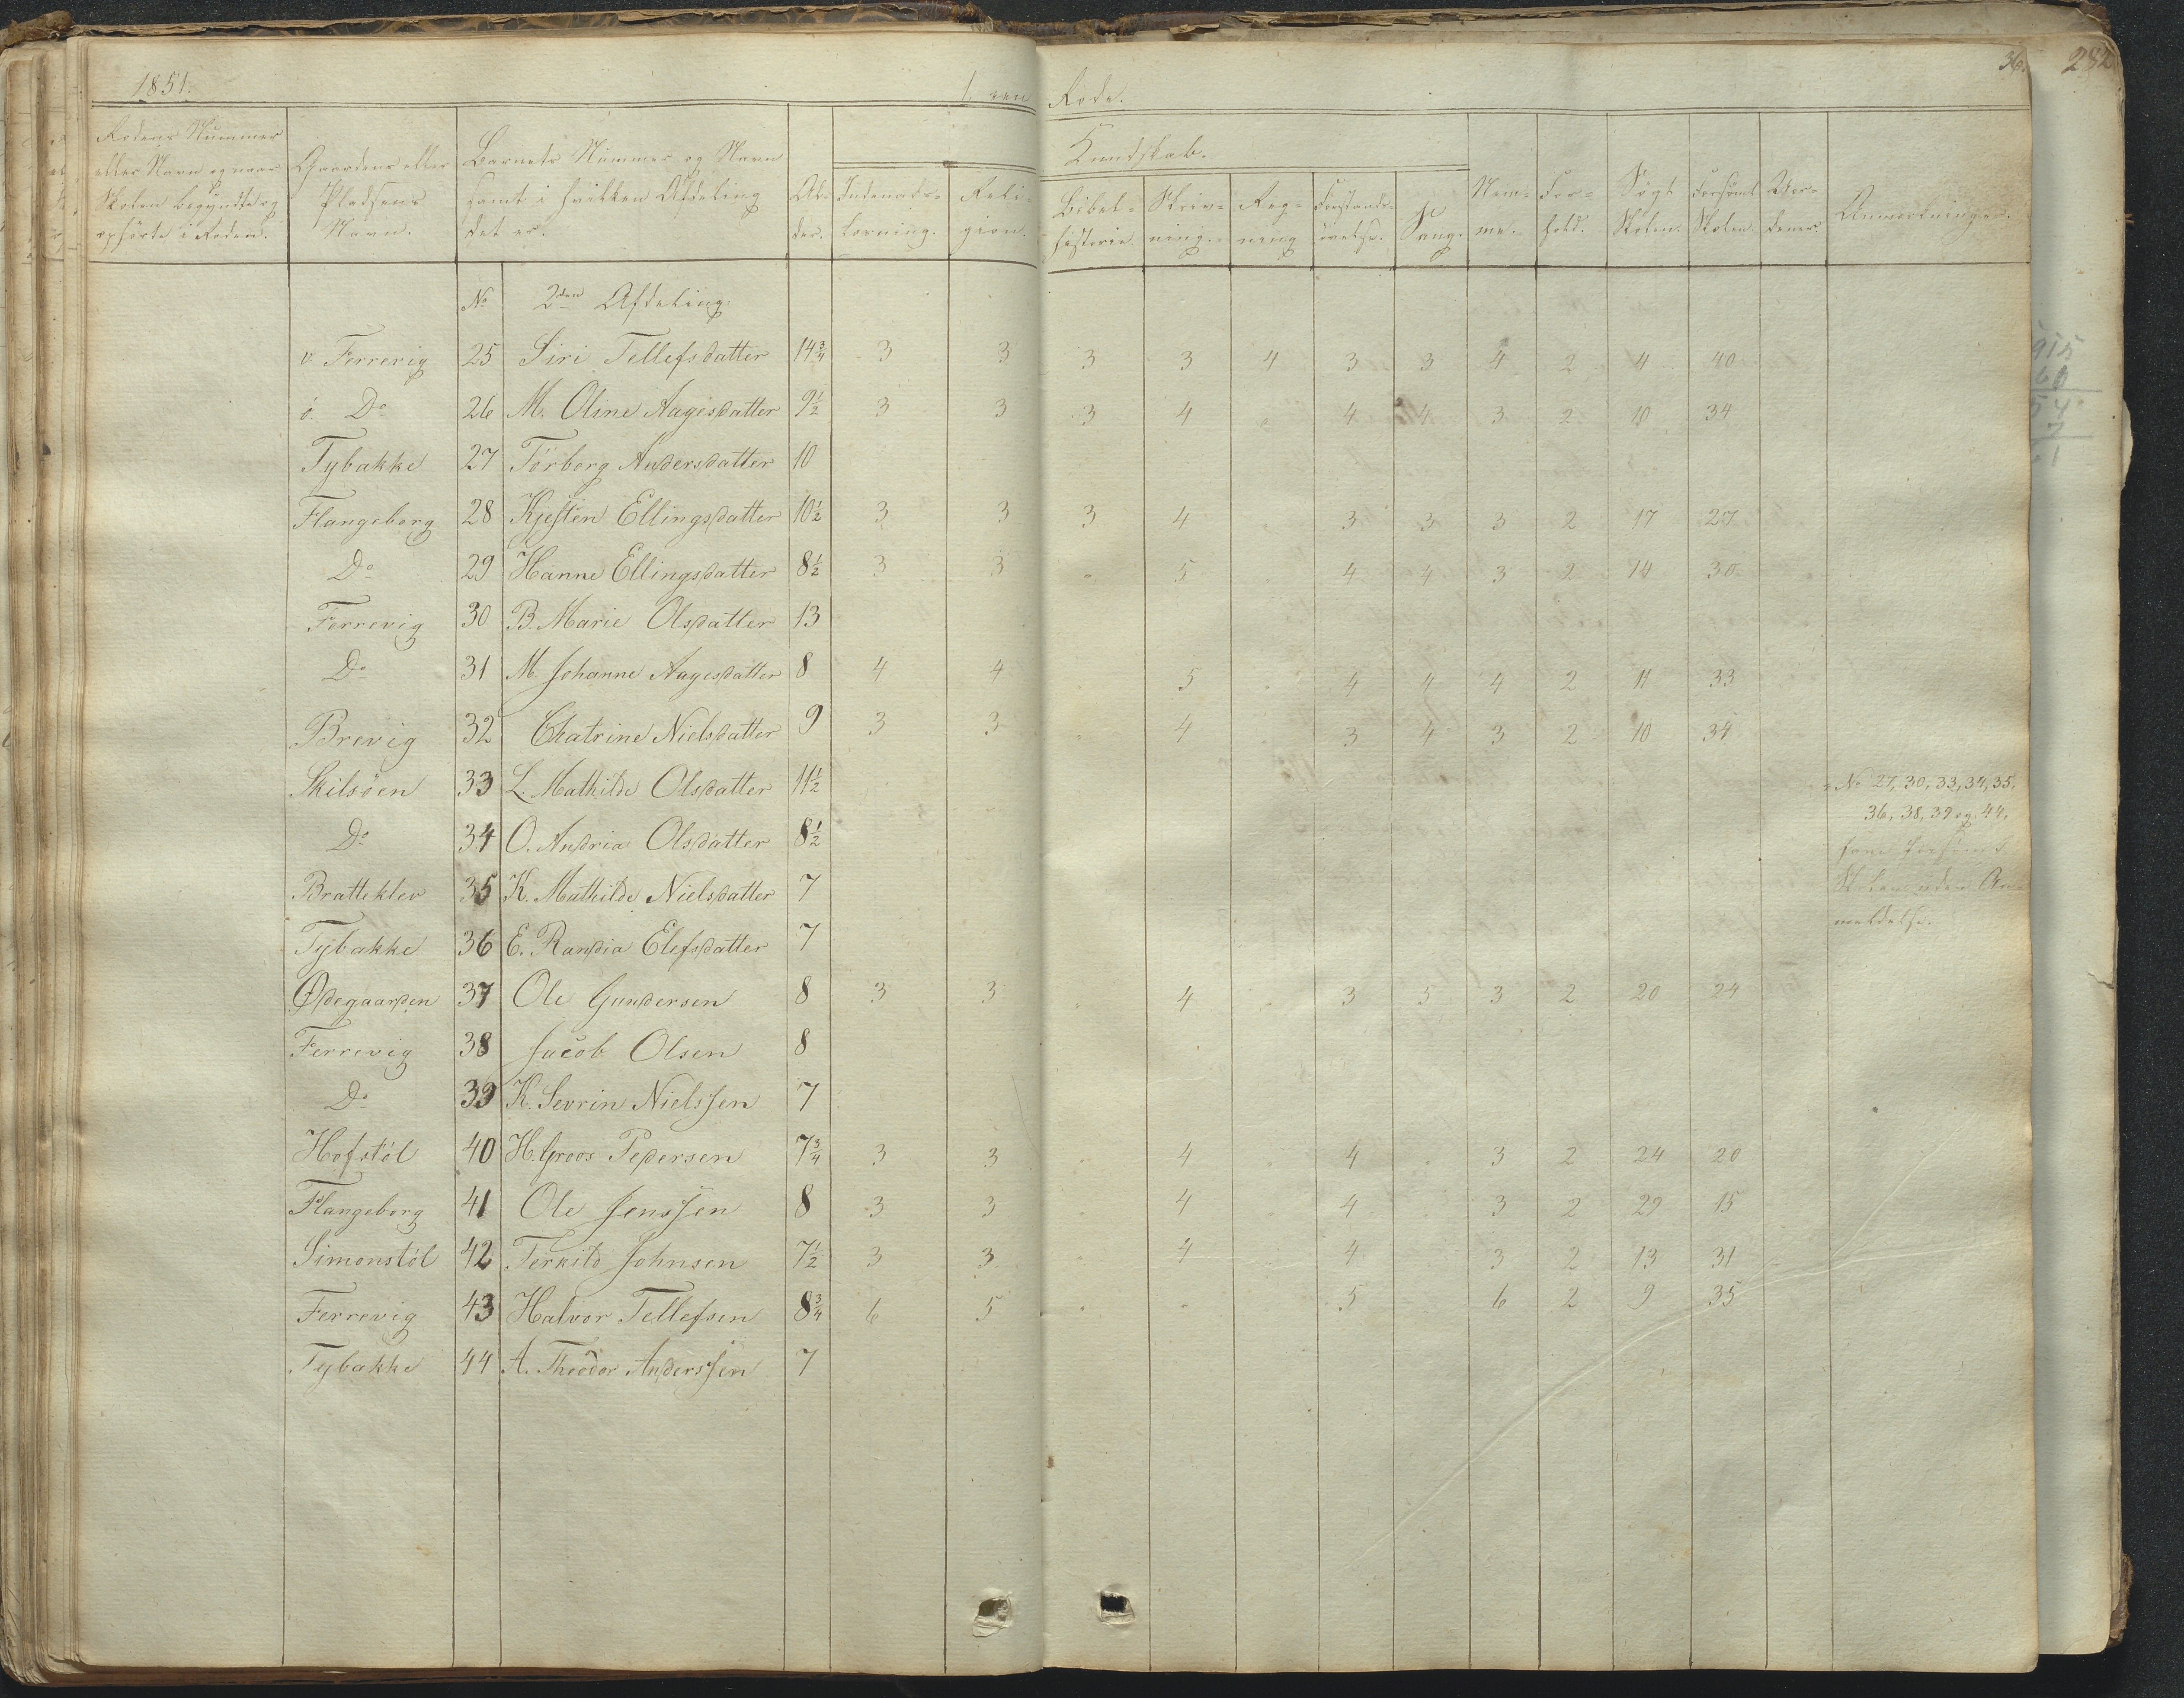 1851. 1. Rode. 36. 282
Rodens Nummer eller Navn og naar Skolen begyndte og ophørte i Roden. | Gaardens eller Pladsens Navn. | Barnets Nummer og Navn samt i hvilken Afdeling det er. | Al-der. | Kundskab. | Indenads-læsning. | Reli-gion. | Bibel-historie. | Skriv-ning. | Reg-ning | Forstands-øvelse. | Sang. | Nem-me. | For-hold. | Søgt Skolen. | Forsømt Skolen. | Anmærkninger.
No 2den Afdeling.
v. Ferrevig 25 Siri Tellefsdatter 14 3/4 3 3 3 3 4 3 3 4 2 4 40
ø. Do 26 M. Oline Aagesdatter 9 1/2 3 3 3 4 " 4 4 3 2 10 34
Tybakke 27 Tørborg Andersdatter 10
Flangeborg 28 Kjesten Ellingsdatter 10 1/2 3 3 3 4 3 3 3 2 17 27
Do 29 Hanne Ellingsdatter 8 1/2 3 3 " 5 4 4 3 2 14 30
Ferrevig 30 B. Marie Olsdatter 13
Do 31 M. Johanne Aagesdatter 8 4 4 5 4 4 4 2 11 33
Brevig 32 Chatrine Nielsdatter 9 3 3 " 4 3 4 3 2 10 34
Skilsøen 33 L. Mathilde Olsdatter 11 1/2
Do 34 O. Andria Olsdatter 8 1/2
Bratteklev 35 K. Mathilde Nielsdatter 7
Tybakke 36 E. Randia Elefsdatter 7
Ødegaarden 37 Ole Gundersen 8 3 3 " 4 3 5 3 2 20 24
Ferrevig 38 Jacob Olsen 8
Do 39 K. Sevrin Nielssen 7
Hofstøl 40 H. Groos Pedersen 7 3/4 3 3 " 4 4 3 2 24 20
Flangeborg 41 Ole Jenssen 8 3 3 4 4 3 2 29 15
Simonstøl 42 Terkild Johnsen 7 1/2 3 3 4 4 3 2 13 31
Ferrevig 43 Halvor Tellefsen 8 3/4 6 5 " " 5 6 2 9 35
Tybakke 44 A. Theodor Anderssen 7
No 27, 30, 33, 34, 35,
36, 38, 39 og 44,
have forsømt
Skolen uden An-
meldelse.